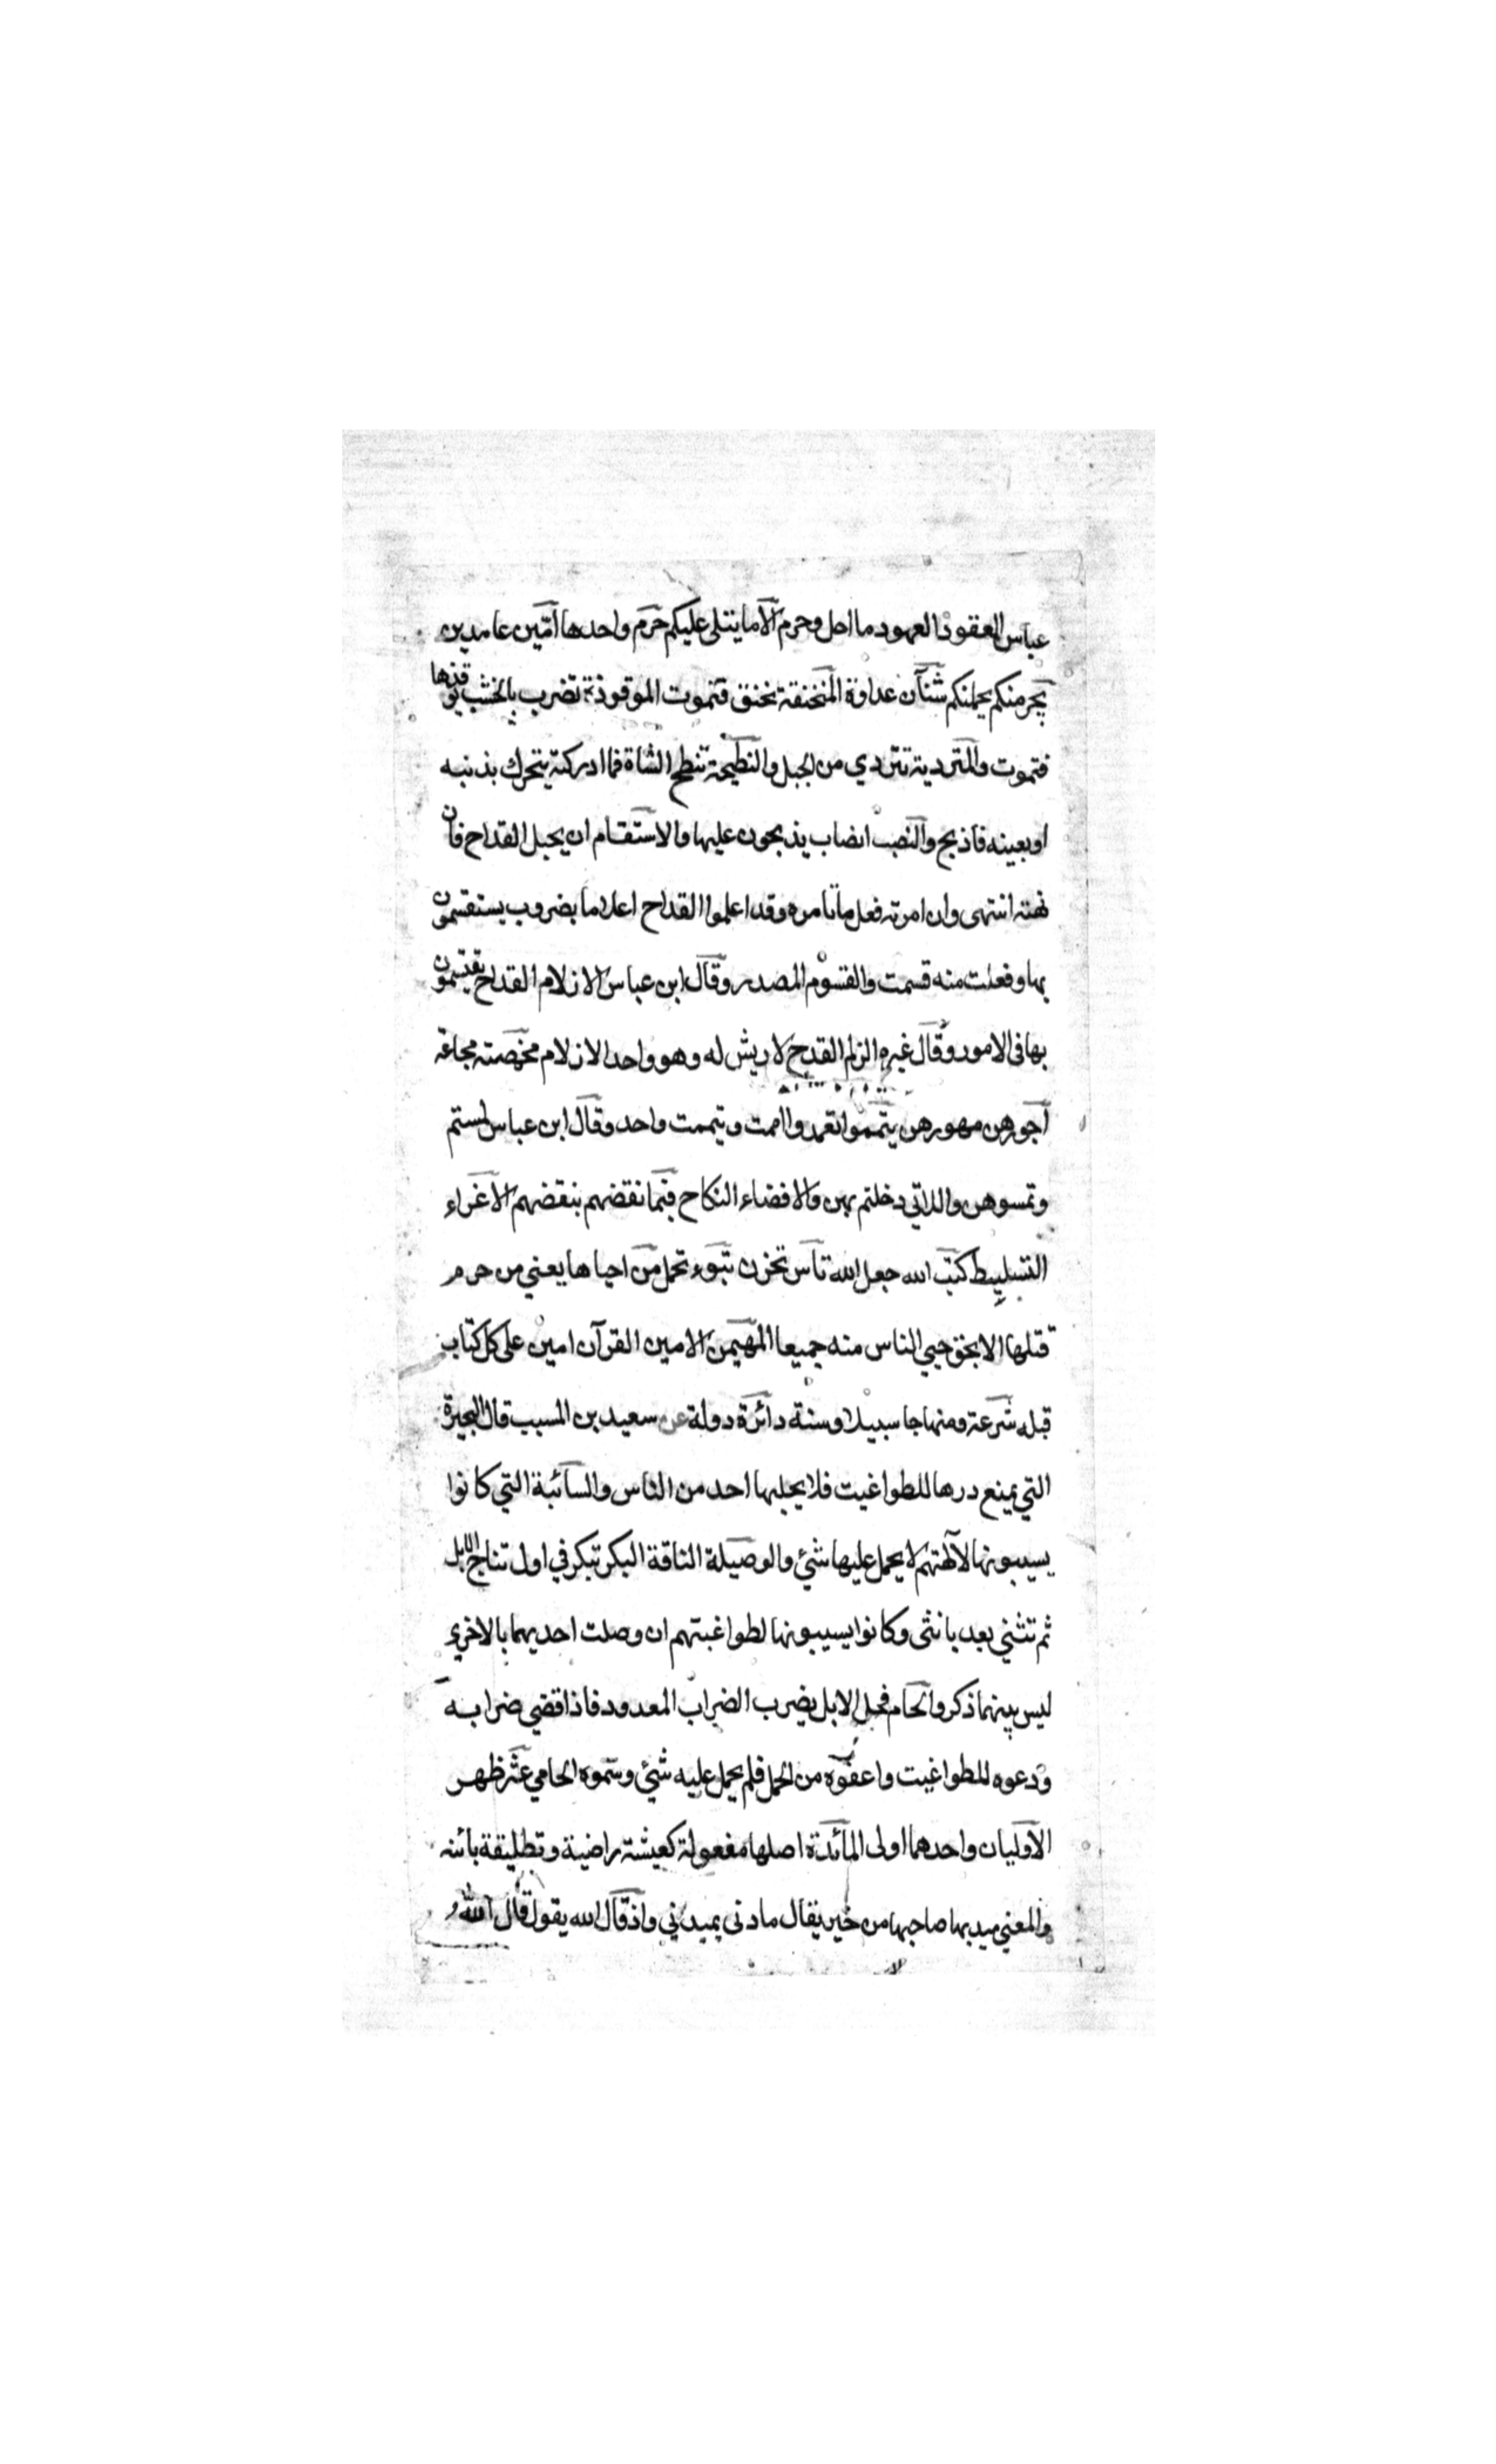 عباس العقود العهود ما احل وحرم الا ما يتلى عليكم حرم واحدها آمين عامدين
يجرمنكم يحملنكم شنآن عداوة المنخنقة تخنق فتموت الموقوذة تضرب بالخشب يوقذها
فتموت والمتردية تتردي من الجبل والنطيحة تنطح الشاة فما ادركته يتحرك بذنبه
او بعينه فاذبح والنصب انصاب يذبحون عليها والاستقسام ان يحيل القداح فان
نهته انتهى وان امرته فعل ما تامره وقد اعلموا القداح اعلاما بضروب يستقسمون
بها وفعلت منه قسمت والقسوم المصدر وقال ابن عباس الازلام القداح يقتسمون
بها في الامور وقال غيره الزلم القدح لا ريش له وهو واحد الازلام مخمصة مجاعة
اجورهن مهورهن يتمموا تعمد واالممت وتيممت واحد وقال ابن عباس لمستم
وتمسوهن واللاتي دخلتم بهن والافضاء النكاح فبما نقضهم بنقضهم الاغراء
التسليط كتب الله جعل الله تاس تحزن تبوء تحمل من احياها يعني من حرم
قتلها الا بحق حيي الناس منه جميعا المهيمن الامين القرآن امين على كل كتاب
قبله شرعة ومنهاجا سبيلا وسنة دائرة دولة عن سعيد بن المسيب قال البحيرة
التي يمنع درها للطواغيت فلا يحلبها احد من الناس والسائبة التي كانوا
يسيبونها لآلهتهم لا يحمل عليها شئ والوصيلة الناقة البكر تبكر في اول نتاج الابل
ثم تثني بعد بانثى وكانوا يسيبونها لطواغيتهم ان وصلت احديهما بالاخرى
ليس بينهما ذكر والحام فحل الابل يضرب الضراب المعدود فاذا قضى ضرابه
ودعوه للطواغيت واعفوه من الحمل فلم يحمل عليه شئ وسموه الحامي عثر ظهر
الاوليان واحدهما اولى المائدة اصلها مفعولة كعيشة راضية وتطليقة بائنة
والمعني ميد بها صاحبها من خير يقال مادني يميدني واذ قال الله يقول قال الله و